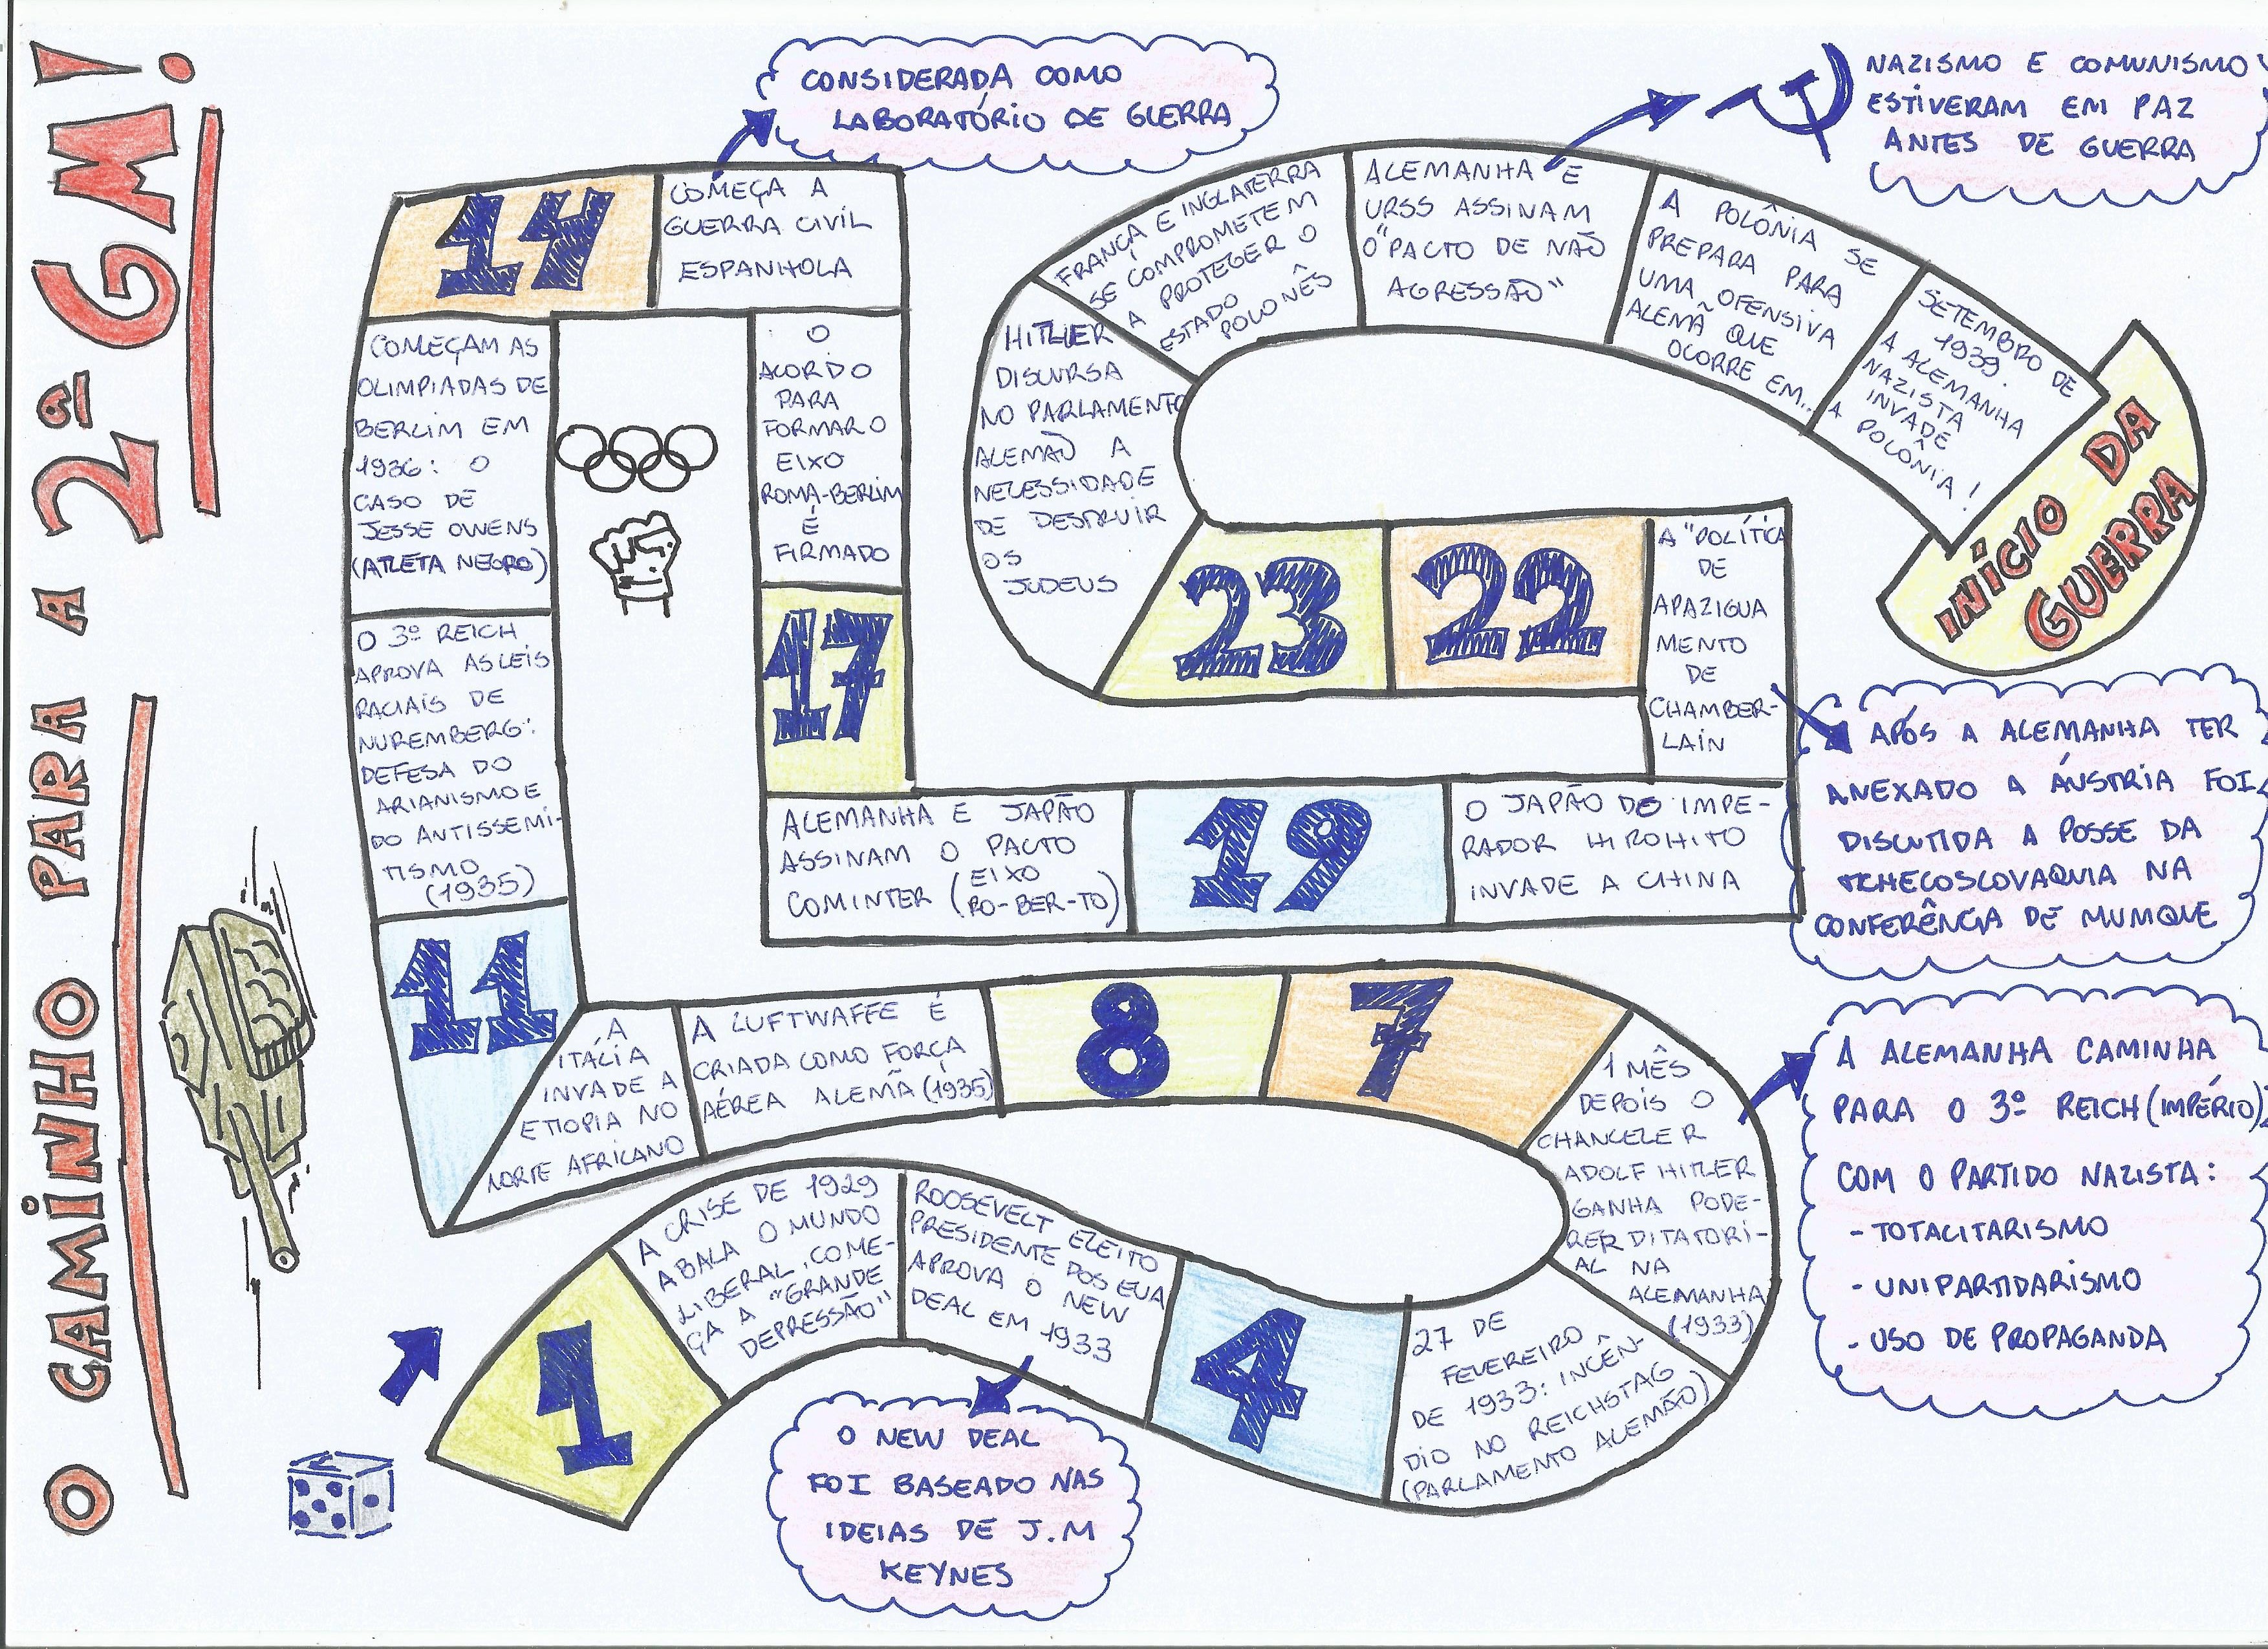 O CAMINHO PARA A 2ª GM!
1
A CRISE DE 1929
ABALA O MUNDO
LIBERAL, COME-
ÇA A "GRANDE
DEPRESSÃO"
ROOSEVELT ELEITO
PRESIDENTE DOS EUA
APROVA O NEW
DEAL EM 1933
O NEW DEAL
FOI BASEADO NAS
IDEIAS DE J.M
KEYNES
4
27 DE
FEVEREIRO
DE 1933: INCÊN-
DIO NO REICHSTAG
(PARLAMENTO ALEMÃO)
1 MÊS
DEPOIS O
CHANCELER
ADOLF HITLER
GANHA PODE-
RER DITATORI-
AL NA
ALEMANHA
(1933)
A ALEMANHA CAMINHA
PARA O 3º REICH (IMPÉRIO)
COM O PARTIDO NAZISTA:
- TOTALITARISMO
- UNIPARTIDARISMO
- USO DE PROPAGANDA
7
8
A LUFTWAFFE É
CRIADA COMO FORÇA
AÉREA ALEMÃ (1935)
A
ITÁLIA
INVADE A
ETIOPIA NO
NORTE AFRICANO
11
O 3º REICH
APROVA AS LEIS
RACIAIS DE
NUREMBERG:
DEFESA DO
ARIANISMO E
DO ANTISSEMI-
TISMO
(1935)
COMEÇAM AS
OLIMPIADAS DE
BERLIM EM
1936: O
CASO DE
JESSE OWENS
(ATLETA NEGRO)
14
COMEÇA A
GUERRA CIVIL
ESPANHOLA
CONSIDERADA COMO
LABORATÓRIO DE GUERRA
O
ACORDO
PARA
FORMAR O
EIXO
ROMA-BERLIM
É
FIRMADO
17
ALEMANHA E JAPÃO
ASSINAM O PACTO
COMINTER (EIXO
RO-BER-TO)
19
O JAPÃO DO IMPE-
RADOR HIROHITO
INVADE A CHINA
A "POLÍTICA
DE
APAZIGUA
MENTO
DE
CHAMBER-
LAIN
APÓS A ALEMANHA TER
ANEXADO A ÁUSTRIA FOI
DISCUTIDA A POSSE DA
TCHECOSLOVAQUIA NA
CONFERÊNCIA DE MUNIQUE
22
23
HITLER
DISCURSA
NO PARLAMENTO
ALEMÃO A
NECESSIDADE
DE DESTRUIR
OS
JUDEUS
FRANÇA E INGLATERRA
SE COMPROMETEM
A PROTEGER O
ESTADO
POLONÊS
ALEMANHA E
URSS ASSINAM
O "PACTO DE NÃO
AGRESSÃO"
NAZISMO E COMUNISMO
ESTIVERAM EM PAZ
ANTES DE GUERRA
A POLÔNIA SE
PREPARA PARA
UMA OFENSIVA
ALEMÃ QUE
OCORRE EM...
SETEMBRO DE
1939.
A ALEMANHA
NAZISTA
INVADE
A POLÔNIA!
INÍCIO DA
GUERRA